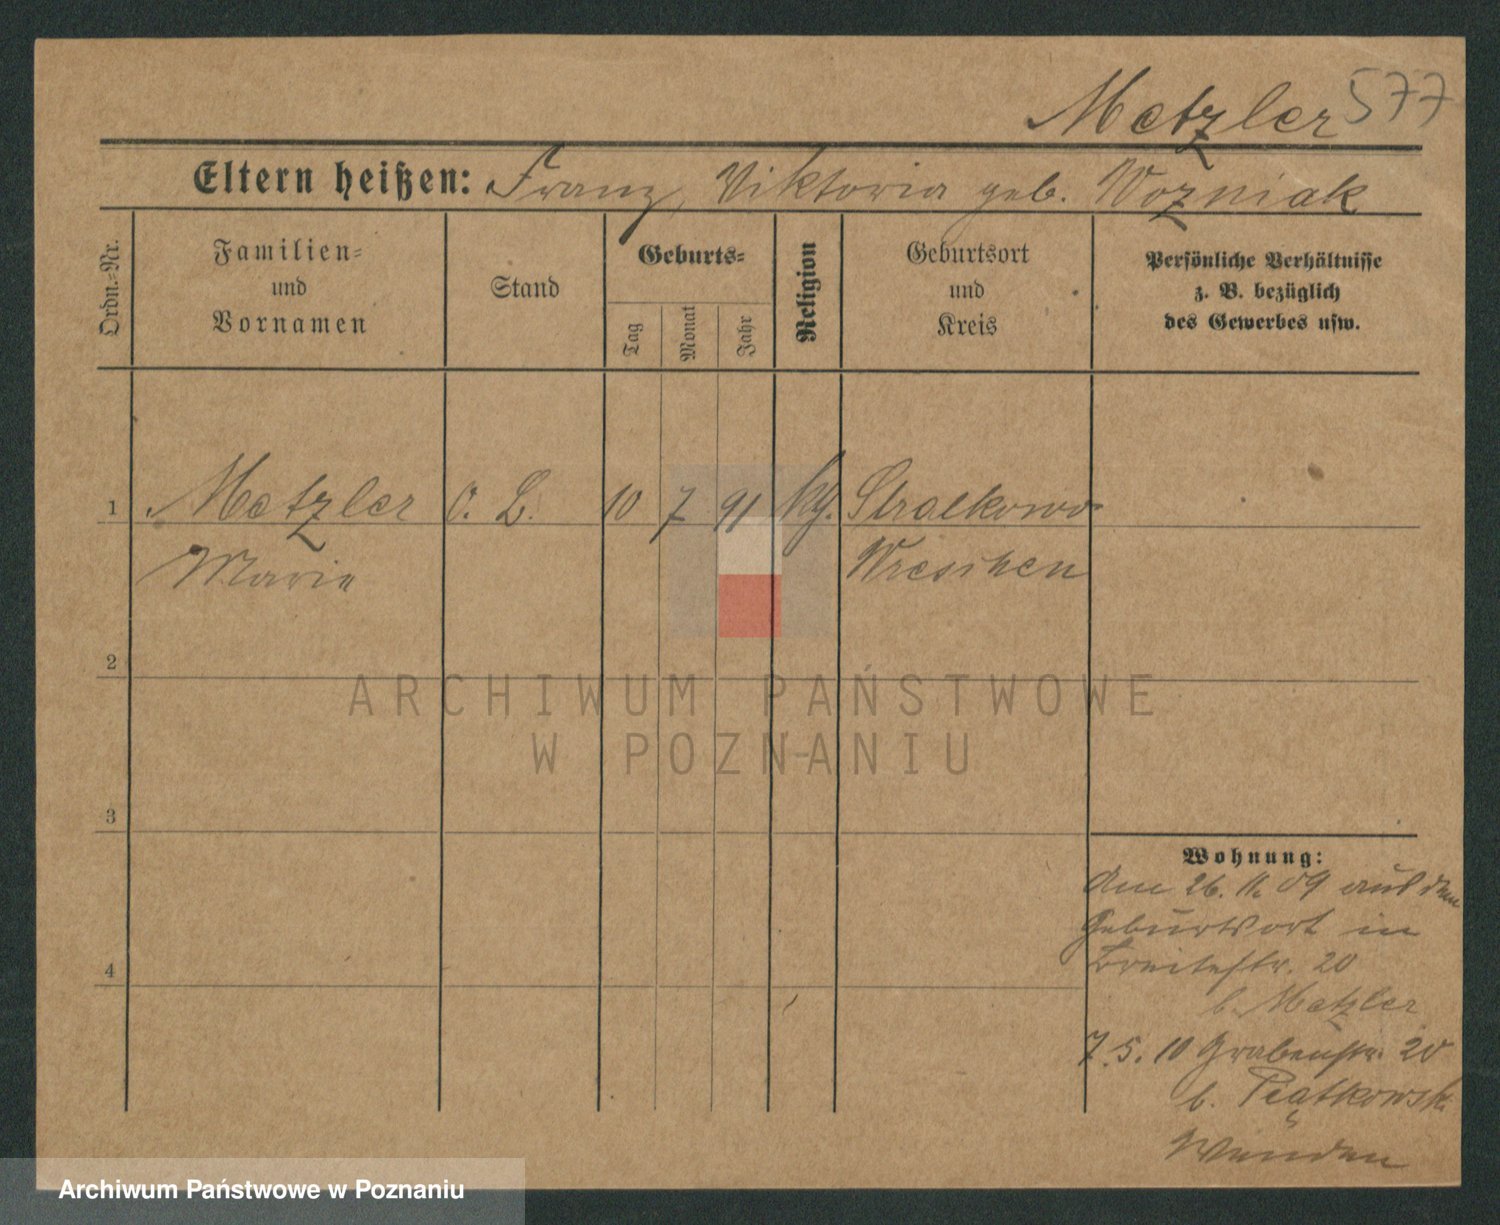 Metzler 577
Eltern heißen: Franz, Viktoria geb. Wozniak
Ordn.-Nr.
Familien-
und
Vornamen
Stand
Geburts-
Tag
Monat
Jahr
Religion
Geburtsort
und
Kreis
Persönliche Verhältnisse
z. B. bezüglich
des Gewerbes usw.
1 Metzler o. B. 10 7 91 kg. Stralkowo
Marie Wreschen
2
ARCHIWUM PAŃSTWOWE
W POZNANIU
3
Wohnung:
Am 26. 11. 09 aus dem
Geburtsort in
Breitestr. 20
b. Metzler
4
7. 5. 10 Grabenstr. 20
b. Piątkowsk
Archiwum Państwowe w Poznaniu